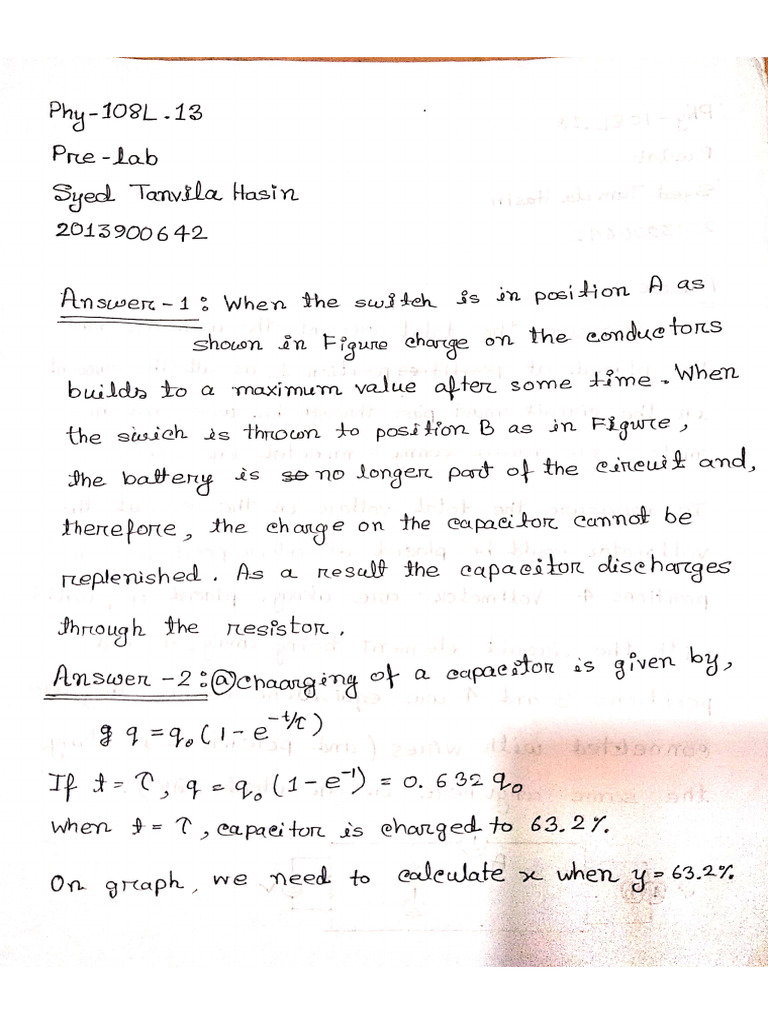 Phy-108L.13
Pre-lab
Syed Tanvila Hasin
2013900642
Answer-1: When the switch is in position A as
shown in Figure charge on the conductors
builds to a maximum value after some time. When
the swich is thrown to position B as in Figure,
the battery is so no longer part of the circuit and,
therefore, the charge on the capacitor cannot be
replenished. As a result the capacitor discharges
through the resistor.
Answer-2: ⓐ Chaarging of a capacitor is given by,
q = q₀ (1 - e^(-t/τ))
If t = τ, q = q₀ (1 - e⁻¹) = 0.632 q₀
when t = τ, capacitor is charged to 63.2%.
On graph, we need to calculate x when y = 63.2%